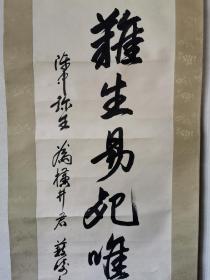 難生易死唯
陣中弥生 為横井君